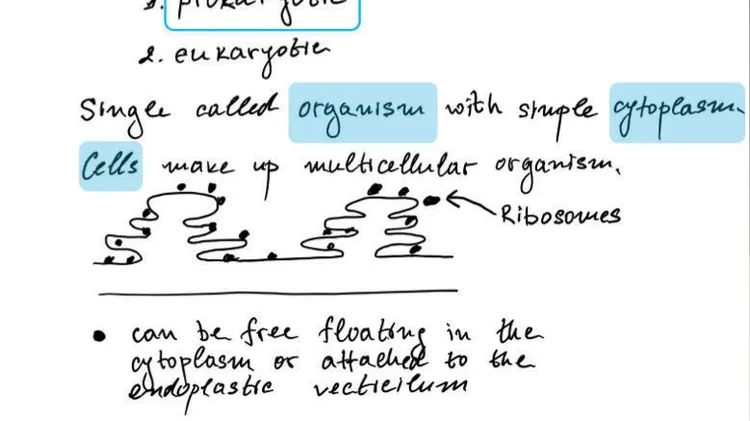 1. prokaryotic
2. eukaryotic
Single called organism with simple cytoplasm.
Cells make up multicellular organism.
Ribosomes
• can be free floating in the
cytoplasm or attached to the
endoplastic vecticilum